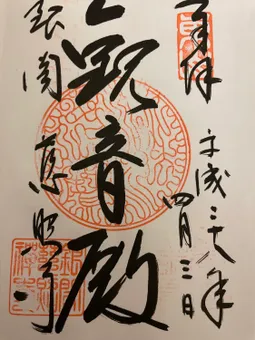 奉拝
平成二十八年
四月三日
観音殿
銀閣
慈照寺